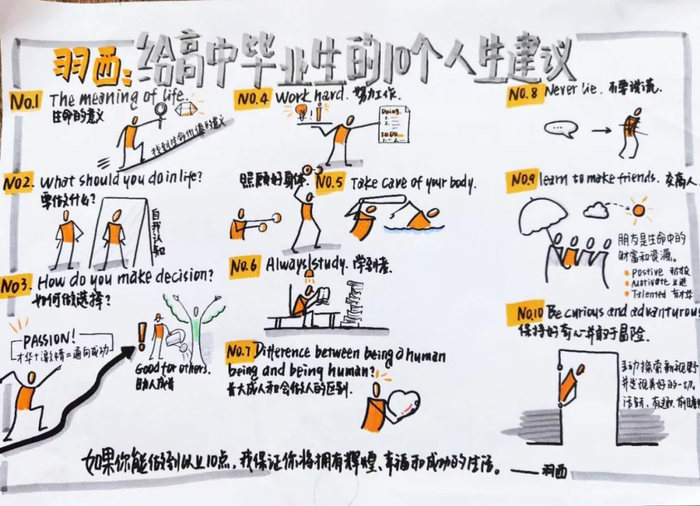 羽西:给高中毕业生的10个人生建议
No.1 The meaning of life.
生命的意义
No2. What should you do in life?
要做什么?
自我认知
No3. How do you make decision?
如何做选择?
PASSION!
才华+激情=通向成功
Good for others.
助人成长
No.4 Work hard. 努力工作.
Doing
照顾好身体. No.5 Take care of your body.
No.6 Always study. 学到老.
No.7 Difference between being a human
being and being human?
做人的区别.
No.8 Never lie. 不要说谎.
No.9 learn to make friends. 交商人.
朋友是生命中的
财富和资源.
Postive 积极
Motivate 上进
Talented 有才华
No.10 Be curious and adventurous
保持好奇心并敢于冒险.
主动探索新视野
如果你能做到以上10点,我保证你将拥有辉煌、幸福和成功的生活。 ——羽西